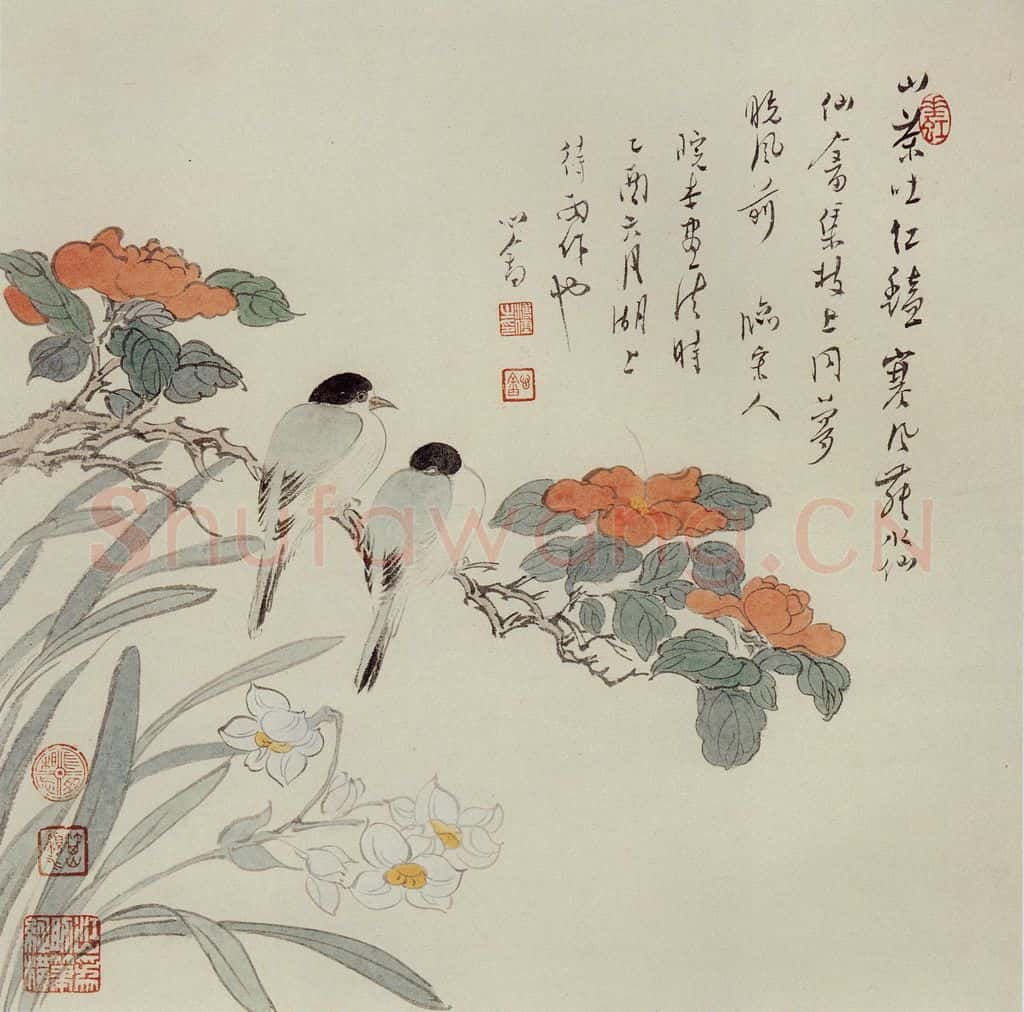 山茶吐 寒風 水仙
仙禽集枝上同夢
晚風前 臨宋人
院本畫法時
乙酉六月湖上
待雨作也
心畬
Shufawang.CN